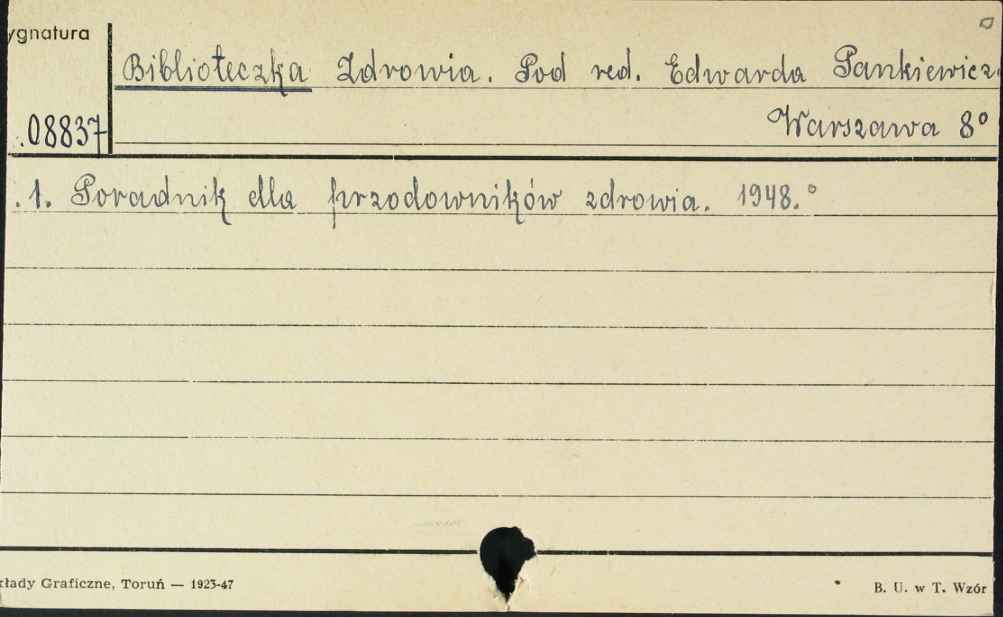 ygnatura
Biblioteczka Zdrowia. Pod red. Edwarda Pankiewicz.
.08837 Warszawa 8°
.1. Poradnik dla przodowników zdrowia. 1948.°
kłady Graficzne, Toruń — 1923-47
B. U. w T. Wzór